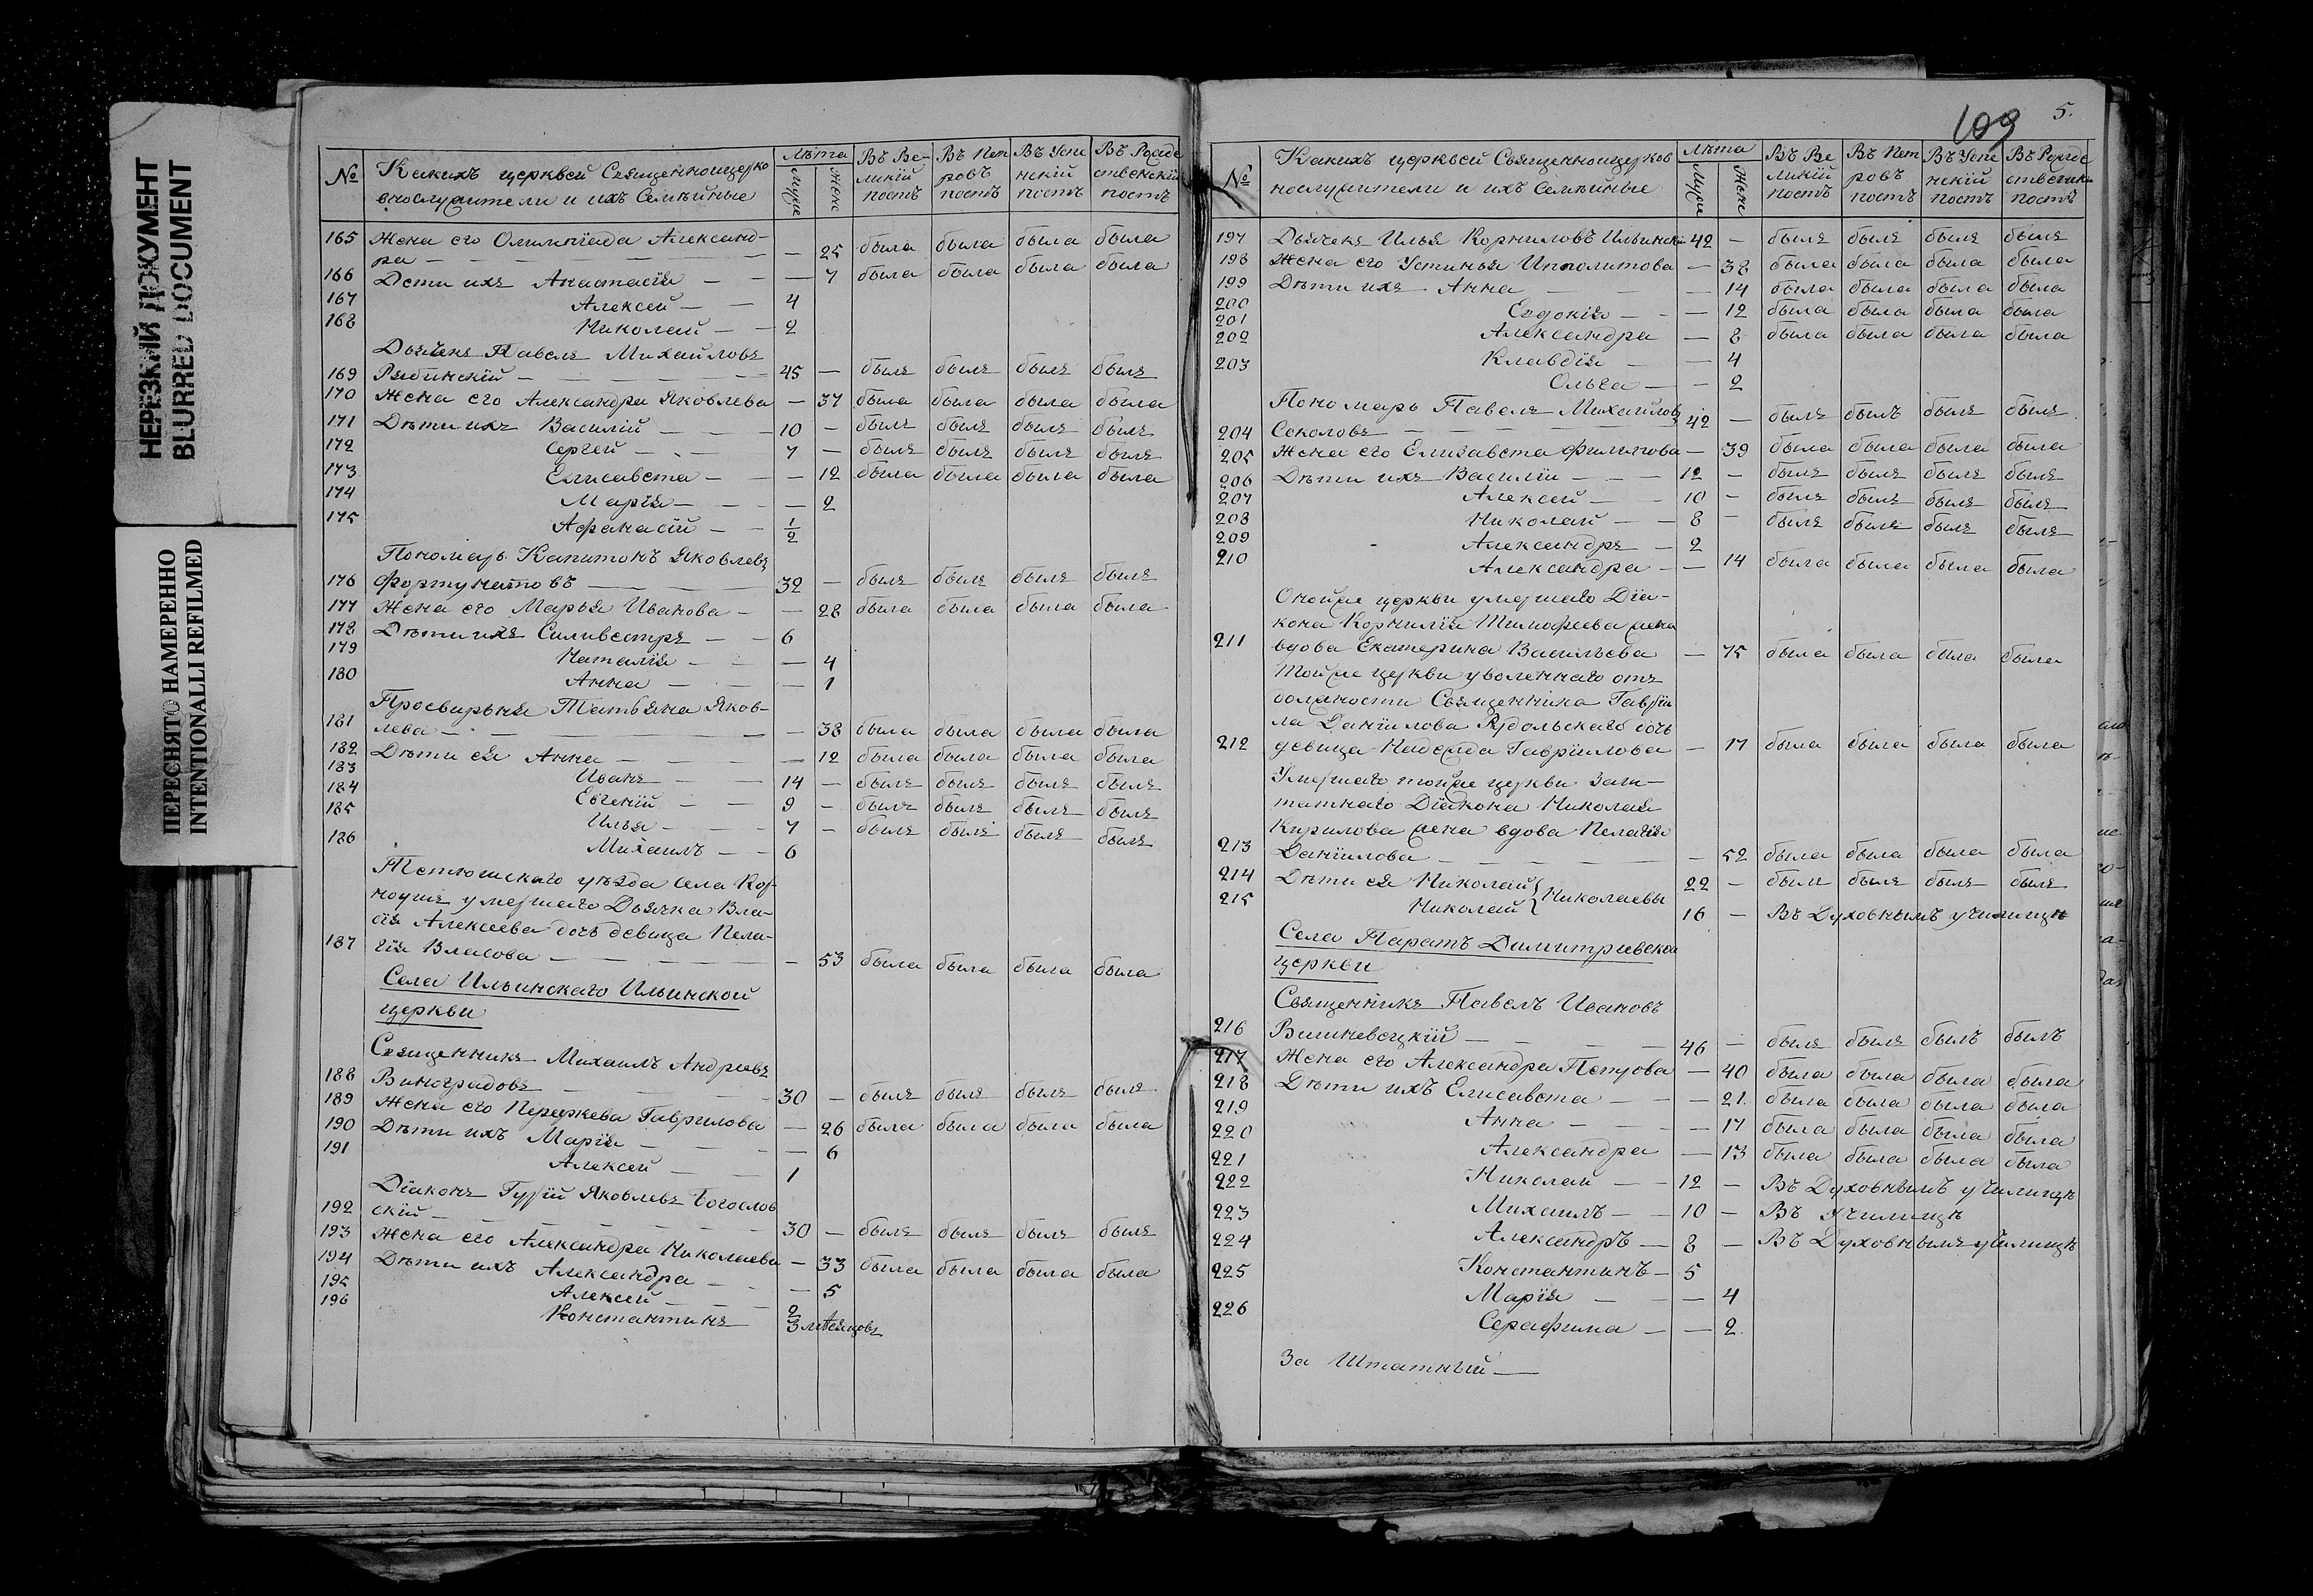 НЕРЕЗКИЙ ДОКУМЕНТ
BLURRED DOCUMENT
ПЕРЕСНЯТО НАМЕРЕННО
INTENTIONALLI REFILMED
№ Какихъ церквей Священноцерко Лѣта Въ Ве- Въ Пет Въ Успе Въ Рожде
внослужители и ихъ Семѣйные Муже Жене ликій ровъ нскій ственскій
постъ постъ постъ постъ
165 Жена его Олимпіада Александ-
ра — — 25 была была была была
166 Дети ихъ Анастасія — — 7 была была была была
167 Алексей — — 4
168 Николай — — 2
Дьячекъ Павелъ Михайловъ
169 Рябинскій — 45 — былъ былъ былъ былъ
170 Жена его Александра Яковлева — 37 была была была была
171 Дѣти ихъ Василій — 10 — былъ былъ былъ былъ
172 Сергей — 7 — былъ былъ былъ былъ
173 Елисавета — — 12 была была была была
174 Марія — — 2
175 Афанасій — 1/2
Пономарь Капитонъ Яковлевъ
176 Фортунатовъ — 32 — былъ былъ былъ былъ
177 Жена его Марья Иванова — — 28 была была была была
178 Дѣти ихъ Силивестръ — 6
179 Наталія — — 4
180 Анна — — 1
Просвирьня Татьяна Яков-
181 лева — — 38 была была была была
182 Дѣти ея Анна — — 12 была была была была
183 Иванъ — 14 — былъ былъ былъ былъ
184 Евгеній — 9 — былъ былъ былъ былъ
185 Илья — 7 — былъ былъ былъ былъ
186 Михаилъ — 6
Тетюшскаго уѣзда села Кор-
ноухъ умершаго Дьячка Вла-
сія Алексеева дочь девица Пела-
187 гія Власова — — 53 была была была была
Села Ильинскаго Ильинской
церкви
Священникъ Михаилъ Андреевъ
188 Виноградовъ — 30 — былъ былъ былъ былъ
189 Жена его Параскева Гаврилова — 26 была была была была
190 Дѣти ихъ Марія — — 6
191 Алексей — 1
Діаконъ Гурій Яковлевъ Богослов
192 скій — 30 — былъ былъ былъ былъ
193 Жена его Александра Николаева — 33 была была была была
194 Дѣти ихъ Александра — — 5
195 Алексей — 2
196 Константинъ 3 мѣсяцовъ
109 5.
№ Какихъ церквей Священноцерков Лѣта Въ Ве Въ Пет Въ Успе Въ Рожде
нослужители и ихъ Семѣйные Муже Жене ликій ровъ нскій ственскій
постъ постъ постъ постъ
197 Дьячекъ Илья Корниловъ Ильинскій 42 — былъ былъ былъ былъ
198 Жена его Устинья Ипполитова — 38 была была была была
199 Дѣти ихъ Анна — 14 была была была была
200 Евдокія — — 12 была была была была
201
202 Александра — 8 была была была была
203 Клавдія — — 4
Ольга — — 2
Пономарь Павелъ Михайловъ
204 Соколовъ — 42 — былъ былъ былъ былъ
205 Жена его Елизавета Филипова — 39 была была была была
206 Дѣти ихъ Василіи — 12 — былъ былъ былъ былъ
207 Алексей — 10 — былъ былъ былъ былъ
208 Николай — 8 — былъ былъ былъ былъ
209 Александръ — 2
210 Александра — — 14 была была была была
Онойже церкви умершаго Діа-
кона Корнилія Тимофеева жена
211 вдова Екатерина Васильева — 75 была была была была
Тойже церкви уволеннаго отъ
должности Священника Гаврі-
ла Данилова дочь
212 девица Надежда Гаврілова — 17 была была была была
Умершаго тойже церкви Заш-
татнаго Діакона Николая
Кирилова жена вдова Пелагія
213 Данілова — — 52 была была была была
214 Дѣти ея Николай } Николаевы 22 — былъ былъ былъ былъ
215 Николай 16 — Въ Духовнымъ училищѣ
Села Паратъ Димитриевской
церкви
Священникъ Павелъ Ивановъ
216 Вишневецкій — 46 — былъ былъ былъ былъ
217 Жена его Александра Петрова — 40 была была была была
218 Дѣти ихъ Елисавета — — 21 была была была была
219 Анна — — 17 была была была была
220 Александра — 13 была была была была
221
222 Николай — 12 — Въ Духовнымъ училищѣ
223 Михаилъ — 10 — Въ училищѣ
224 Александръ — 8 — Въ Духовнымъ училищѣ
225 Константинъ — 5
Марія — — 4
226 Серафима — — 2
За Штатный —